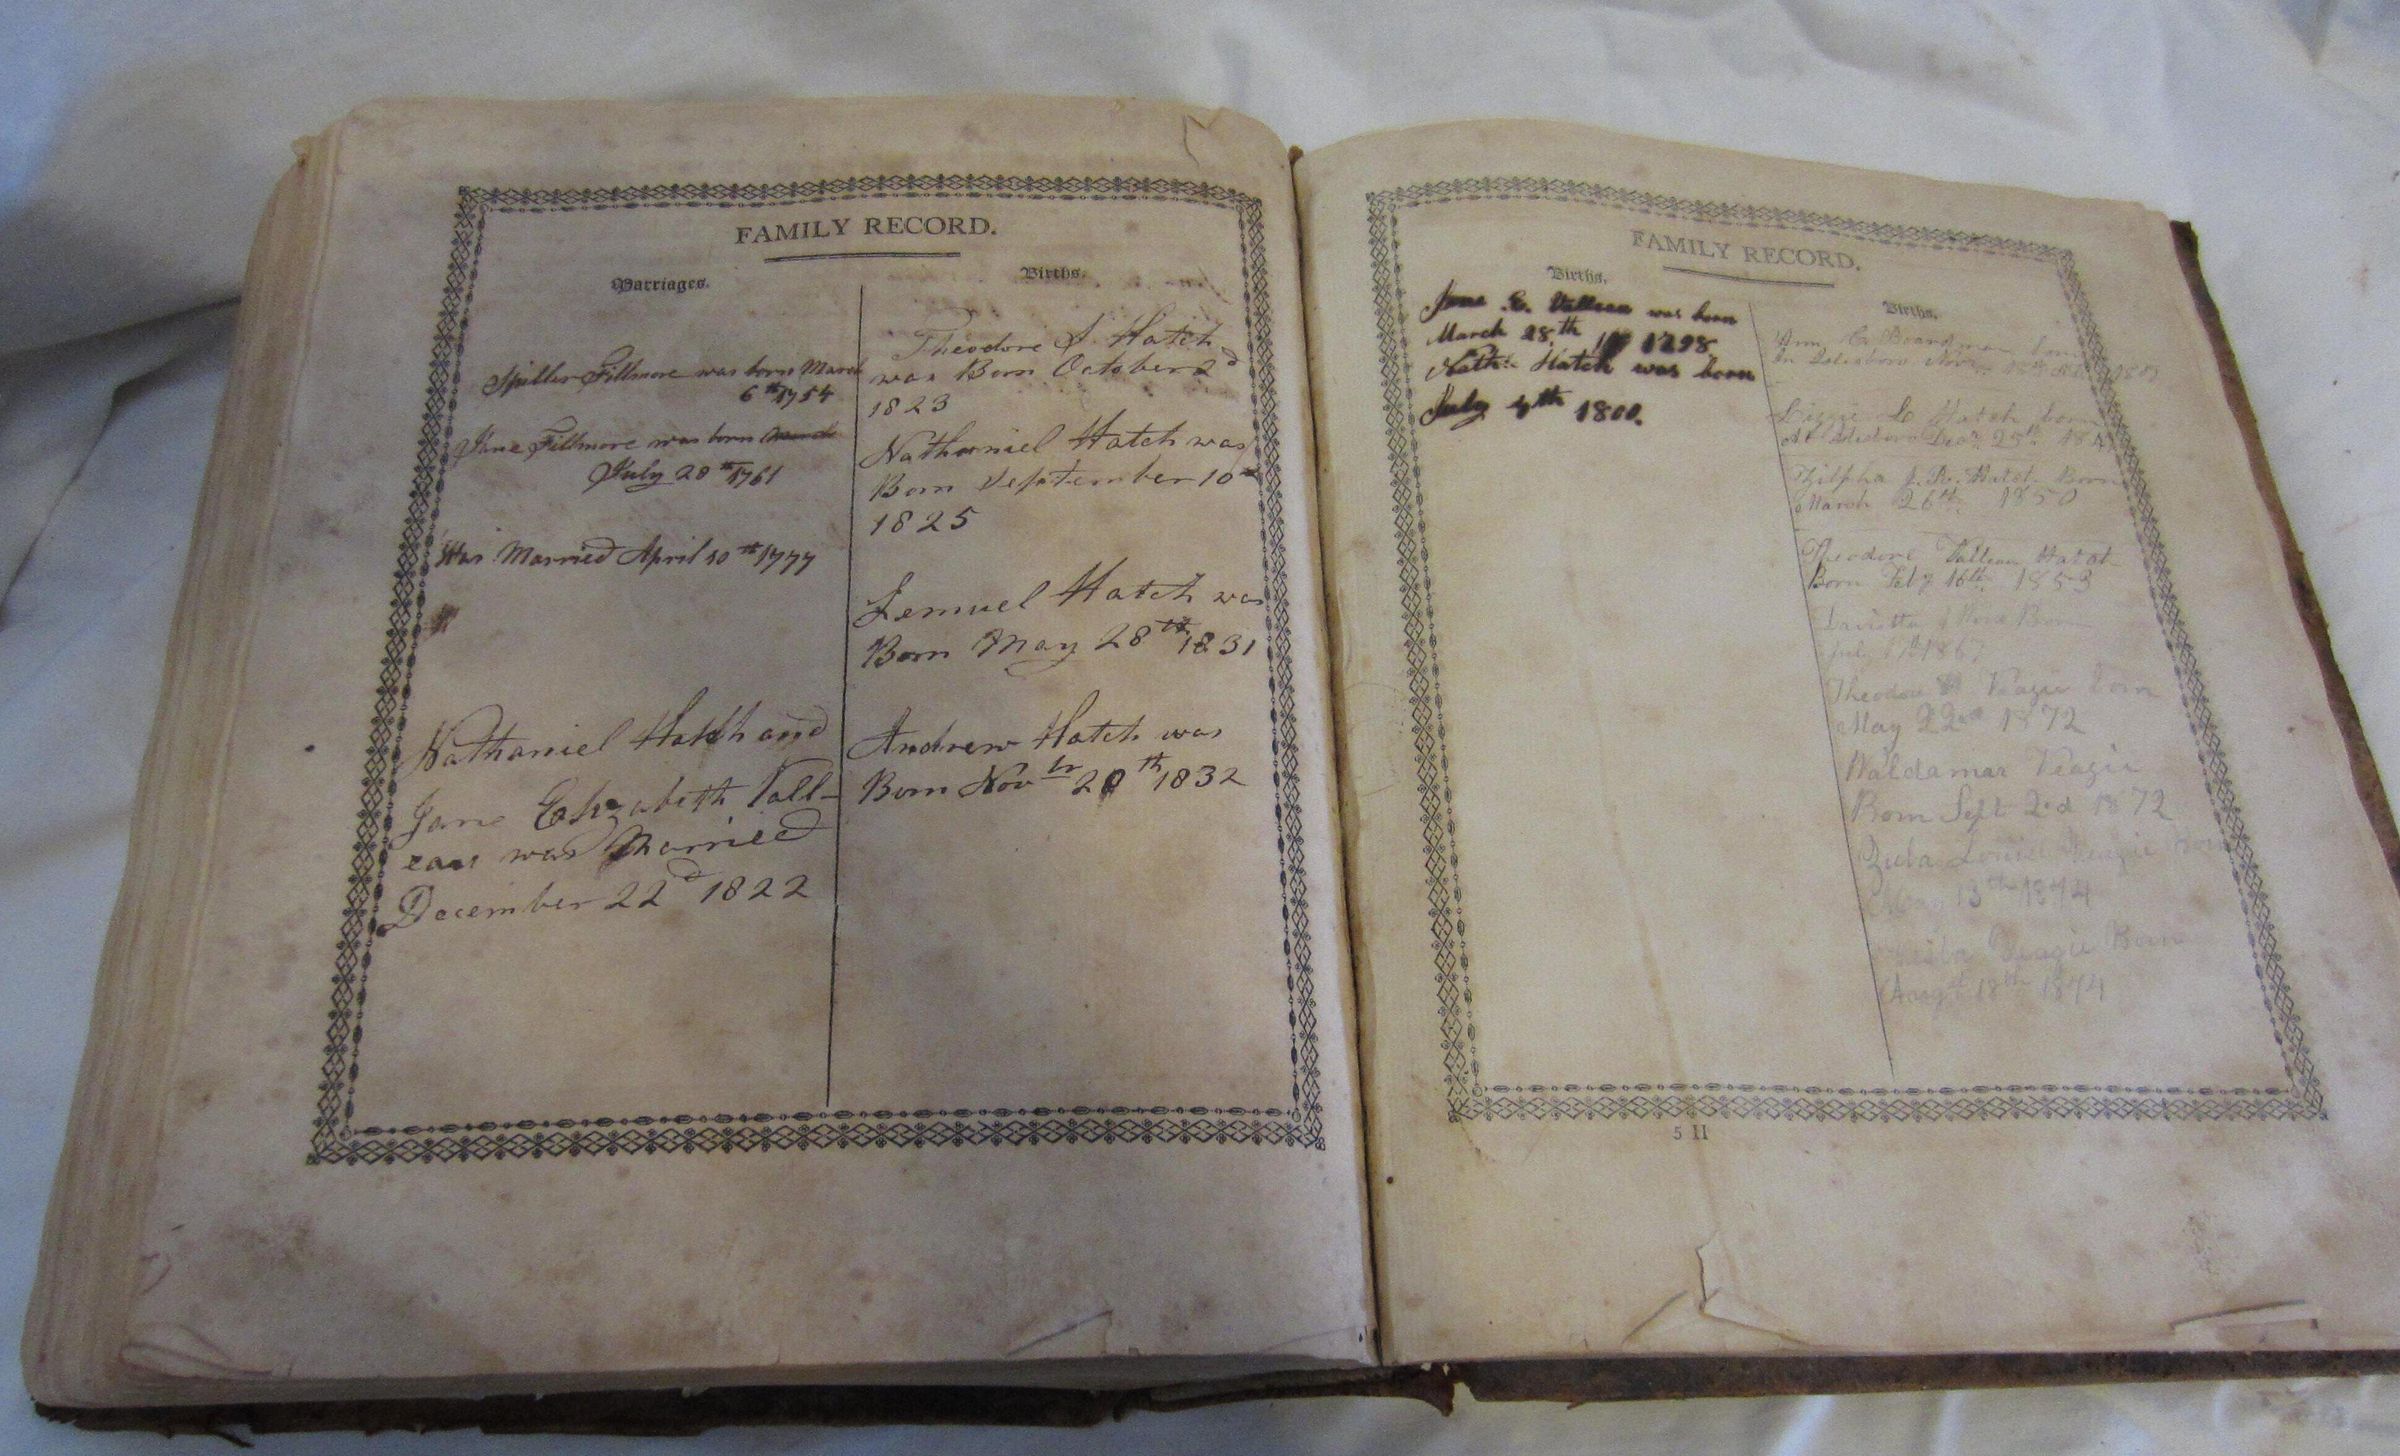 FAMILY RECORD.
Marriages.
Spiller Fillmore was born March
6th 1754
Jane Fillmore was born March
July 28th 1761
Was Married April 10th 1777
Nathaniel Hatch and
Jane Elizabeth Vall-
eau was Married
December 22d 1822
Births.
Theodore S. Hatch
was Born October 2d
1823
Nathaniel Hatch was
Born September 10th
1825
Lemuel Hatch was
Born May 28th 1831
Andrew Hatch was
Born Novbr 20th 1832
FAMILY RECORD.
Births.
Jane E. Valleau was born
March 28th 1798
Nathl. Hatch was born
July 4th 1800.
Births.
Ann C. Boardman born
In Islesboro
Lizzie Hatch born
At Islesboro 25th
Zilpha J. R. Hatch Born
March 26th 1850
Theodore Valleau Hatch
Born Feby 16th 1853
Born
Theodore Veazie Born
May 22nd 1872
Waldamar Veazie
Born Sept 2d 1872
Zula Louise Veazie
13th 1874
Veazie Born
Augt 18th 1874
5 H